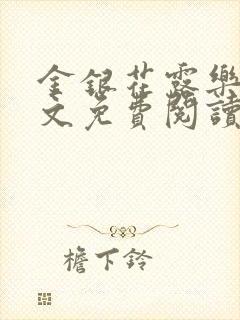 金銀花露樂
文免費閱讀
檐下鈴